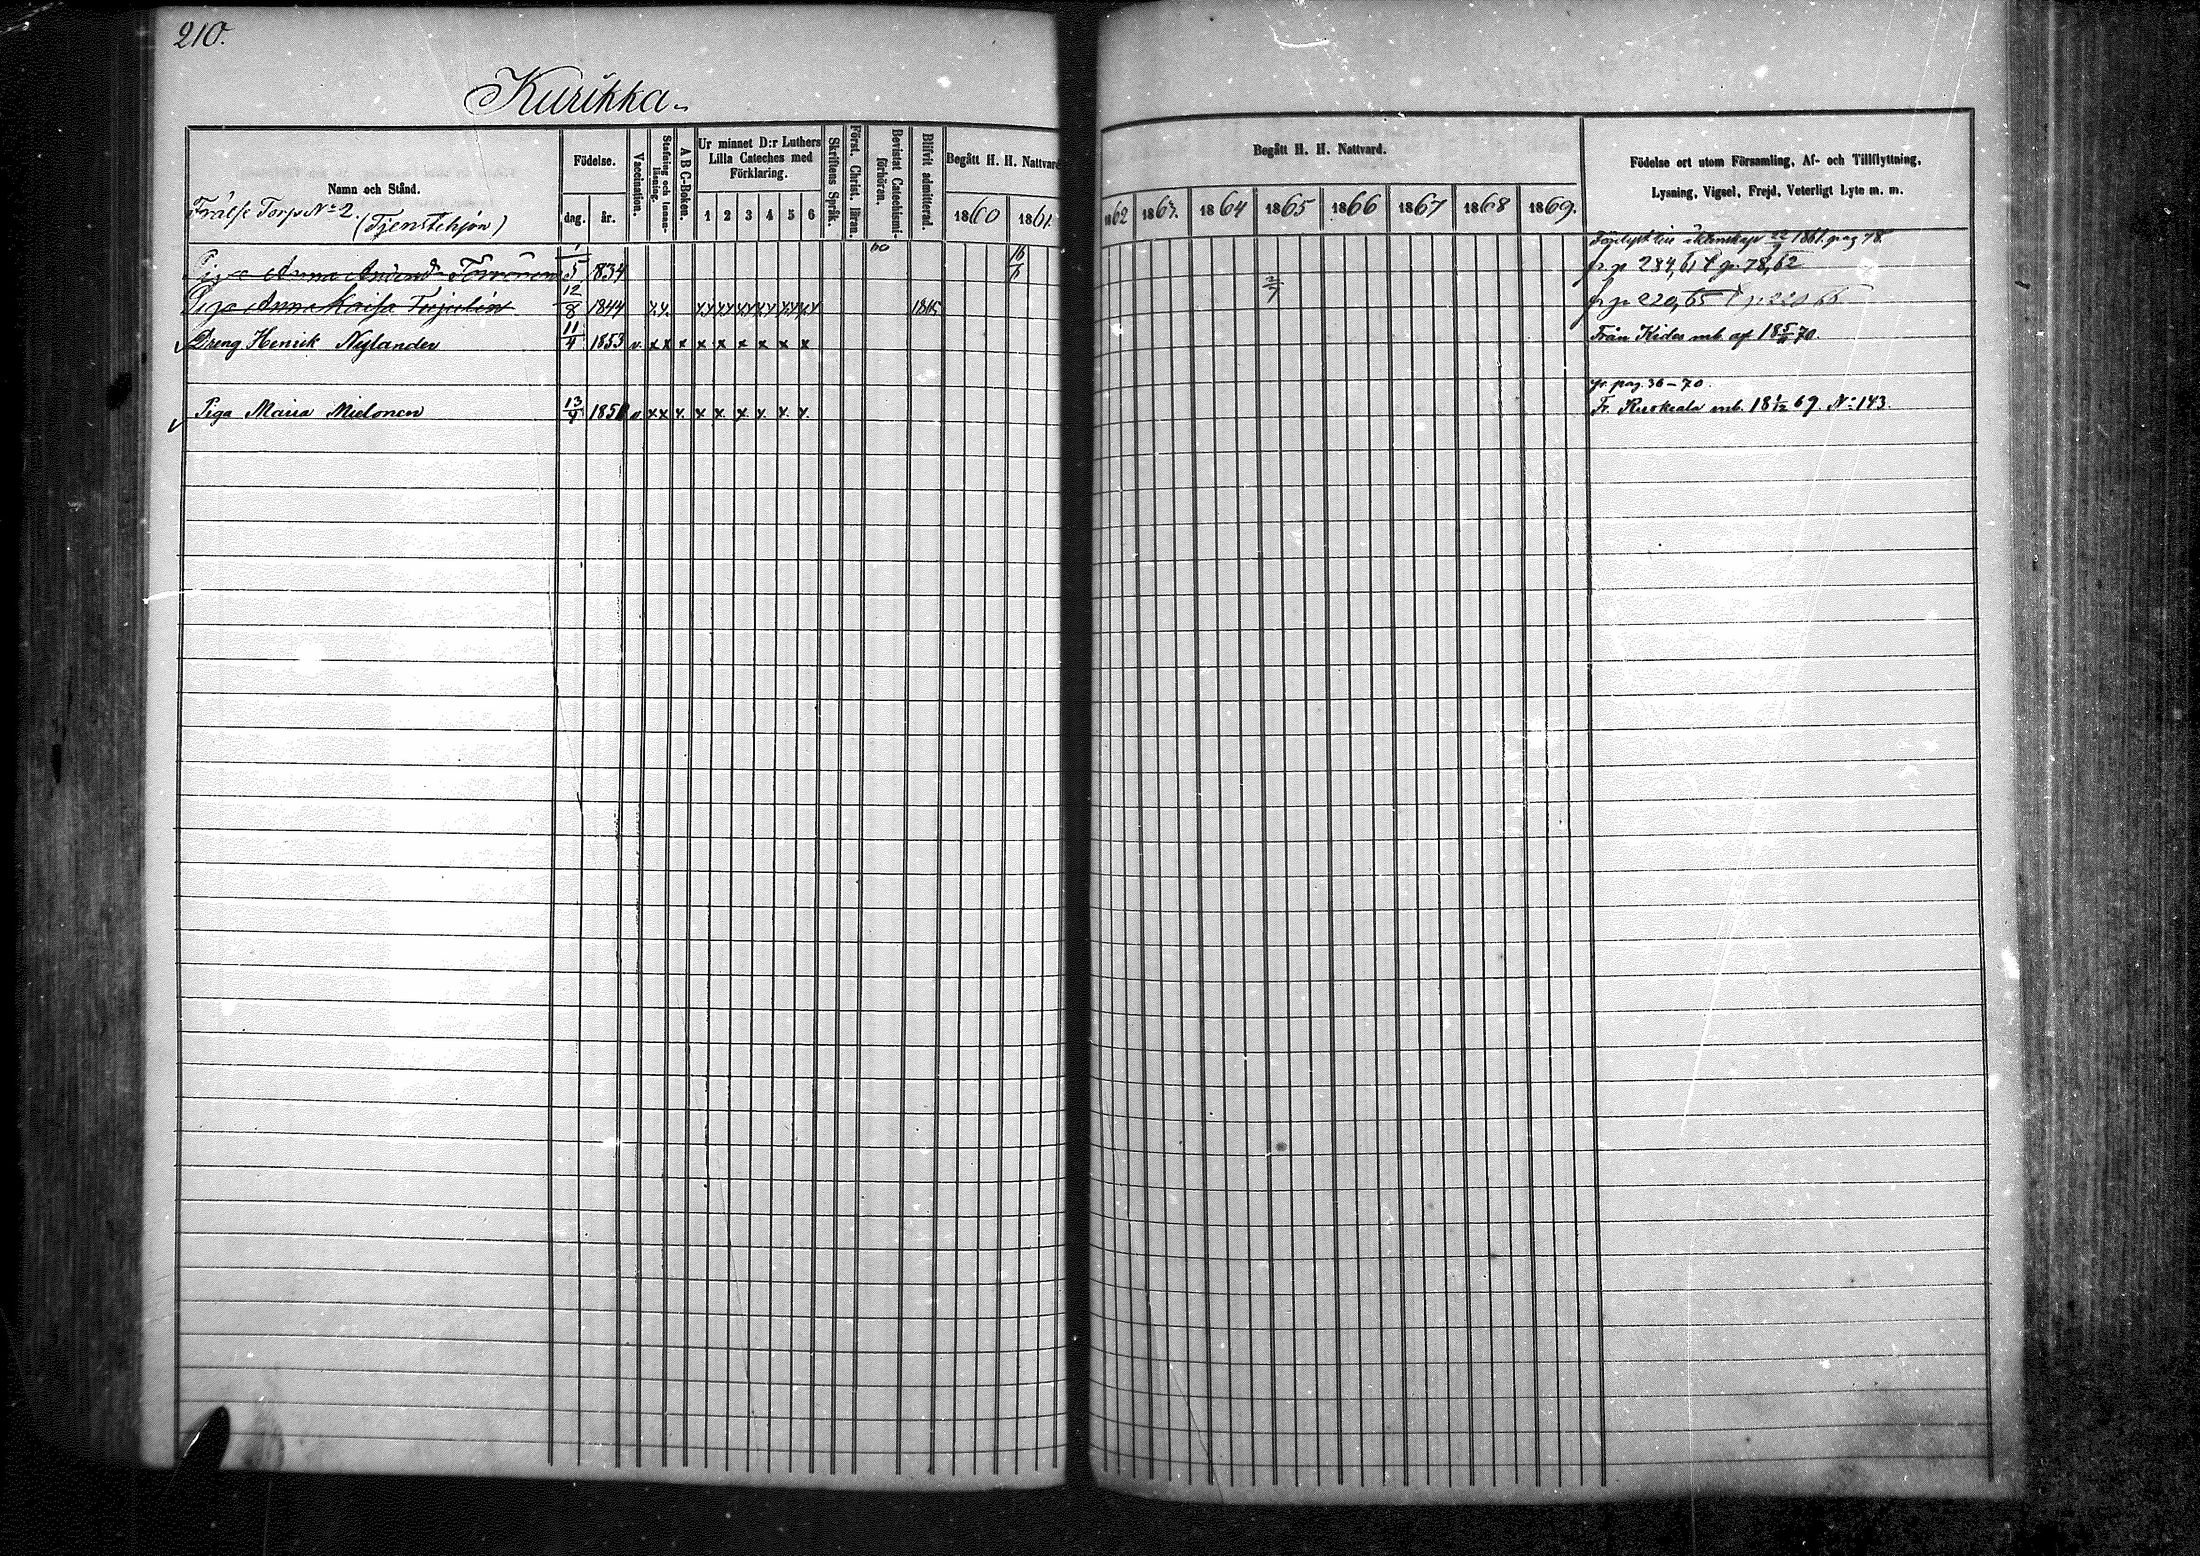 210.
Kurikka.
Namn och Stånd.
Frälse Torp No 2.
(Tjenstehjon)
Födelse.
dag.
år.
Vaccination.
Stafning och Innanläsning.
A B C-Boken.
Ur minnet D:r Luthers Lilla Cateches med Förklaring.
1 2 3 4 5 6
Skriftens Språk.
Först. Christ. läran.
Bevistat Catechismiförhören.
Blifvit admitterad.
Begått H. H. Nattvard
1860 1861.
Begått H. H. Nattvard.
1862 1863. 1864 1865 1866 1867 1868 1869.
Födelse ort utom Församling, Af- och Tillflyttning,
Lysning, Vigsel, Frejd, Veterligt Lyte m. m.
1861. pag 78.
Piga Anna 1/5 1834 60 16/6 fr. p. 284, 61 78, 62
Piga Anna Kaisa 12/8 1844 x x x x x x x x x x x x x x 1865 2/7 fr p 220, 65
Dreng Henrik Nylander 11/4 1853 v. x x x x x x x x x Från Kides mb. af 18 5/ 70.
fr. pag. 36 – 70.
Piga Maria Mielonen 13/9 185 v x x x. x x. x. x. x. x. Fr. Ruskeala mb. 18 1/12 69. No 143.